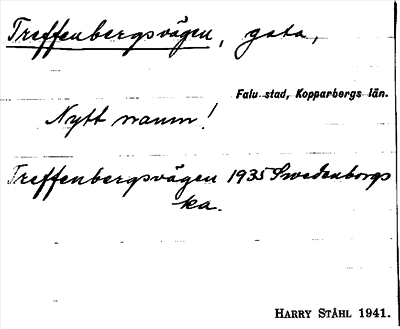 Treffenbergsvägen, gata,
Falu stad, Kopparbergs län.
Nytt namn!
Treffenbergsvägen 1935 Swedenborgs
ka.
HARRY STÅHL 1941.